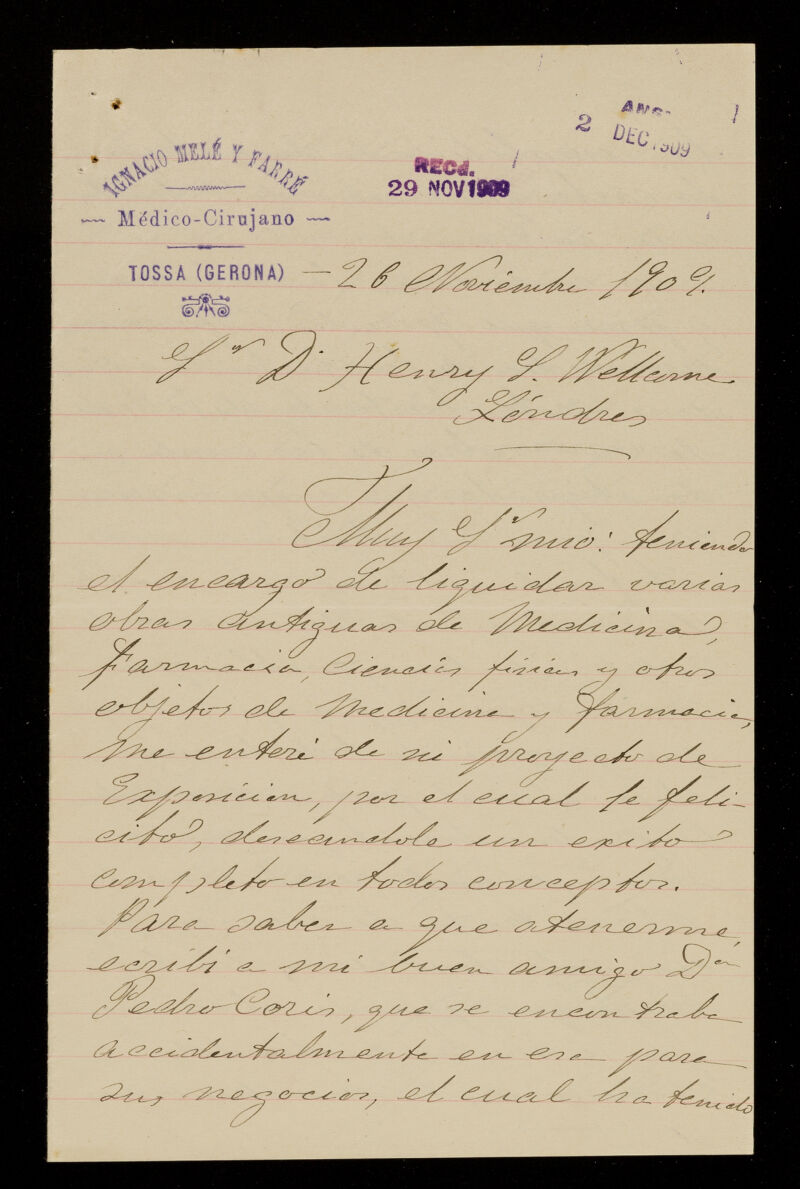 IGNACIO MELÉ Y FARRÉ
Médico-Cirujano
TOSSA (GERONA)
RECd.
29 NOV 1909
ANS
2 DEC 1909
- 26 Noviembre 1909.
Sr D. Henry S. Wellcome
Lóndres
Muy Sr mio: teniendo
el encargo de liquidar varias
obras antiguas de Medicina,
Farmacia, Ciencias fisicas y otros
objetos de Medicina y farmacia,
me enteré de su proyecto de
Exposicion, por el cual le feli-
cito, deseandole un exito
completo en todos conceptos.
Para saber a que atenerme,
ecribi a mi buen amigo Dn
Pedro Coris, que se encontraba
accidentalmente en esa para
sus negocios, el cual ha tenido